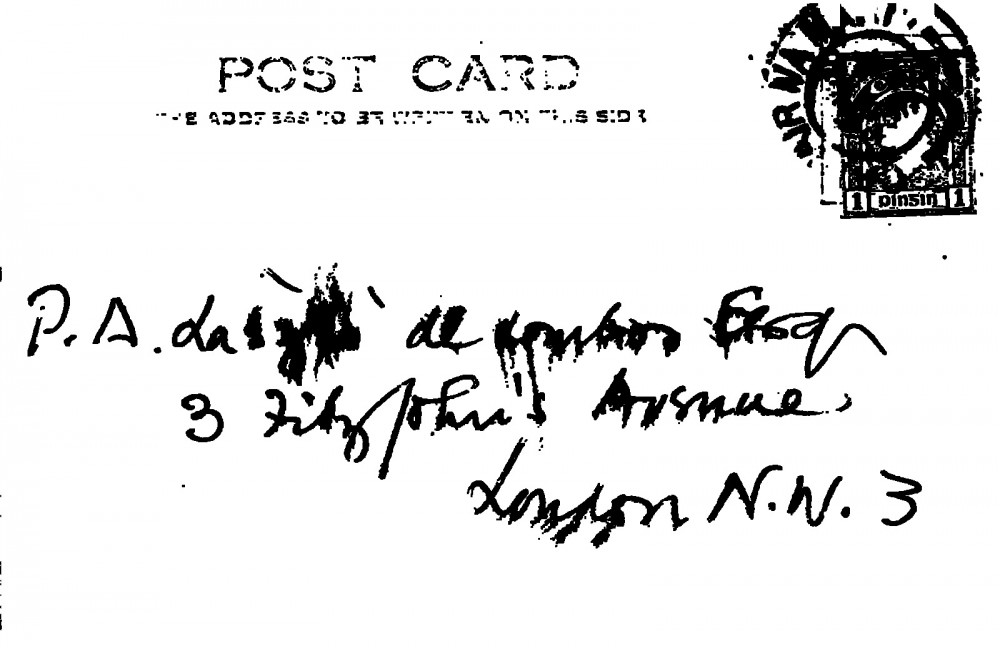 POST CARD
THE ADDRESS TO BE WRITTEN ON THIS SIDE
1 pinsin 1
P. A. László de Lombos Esq
3 Fitzjohn's Avenue
London N.W. 3